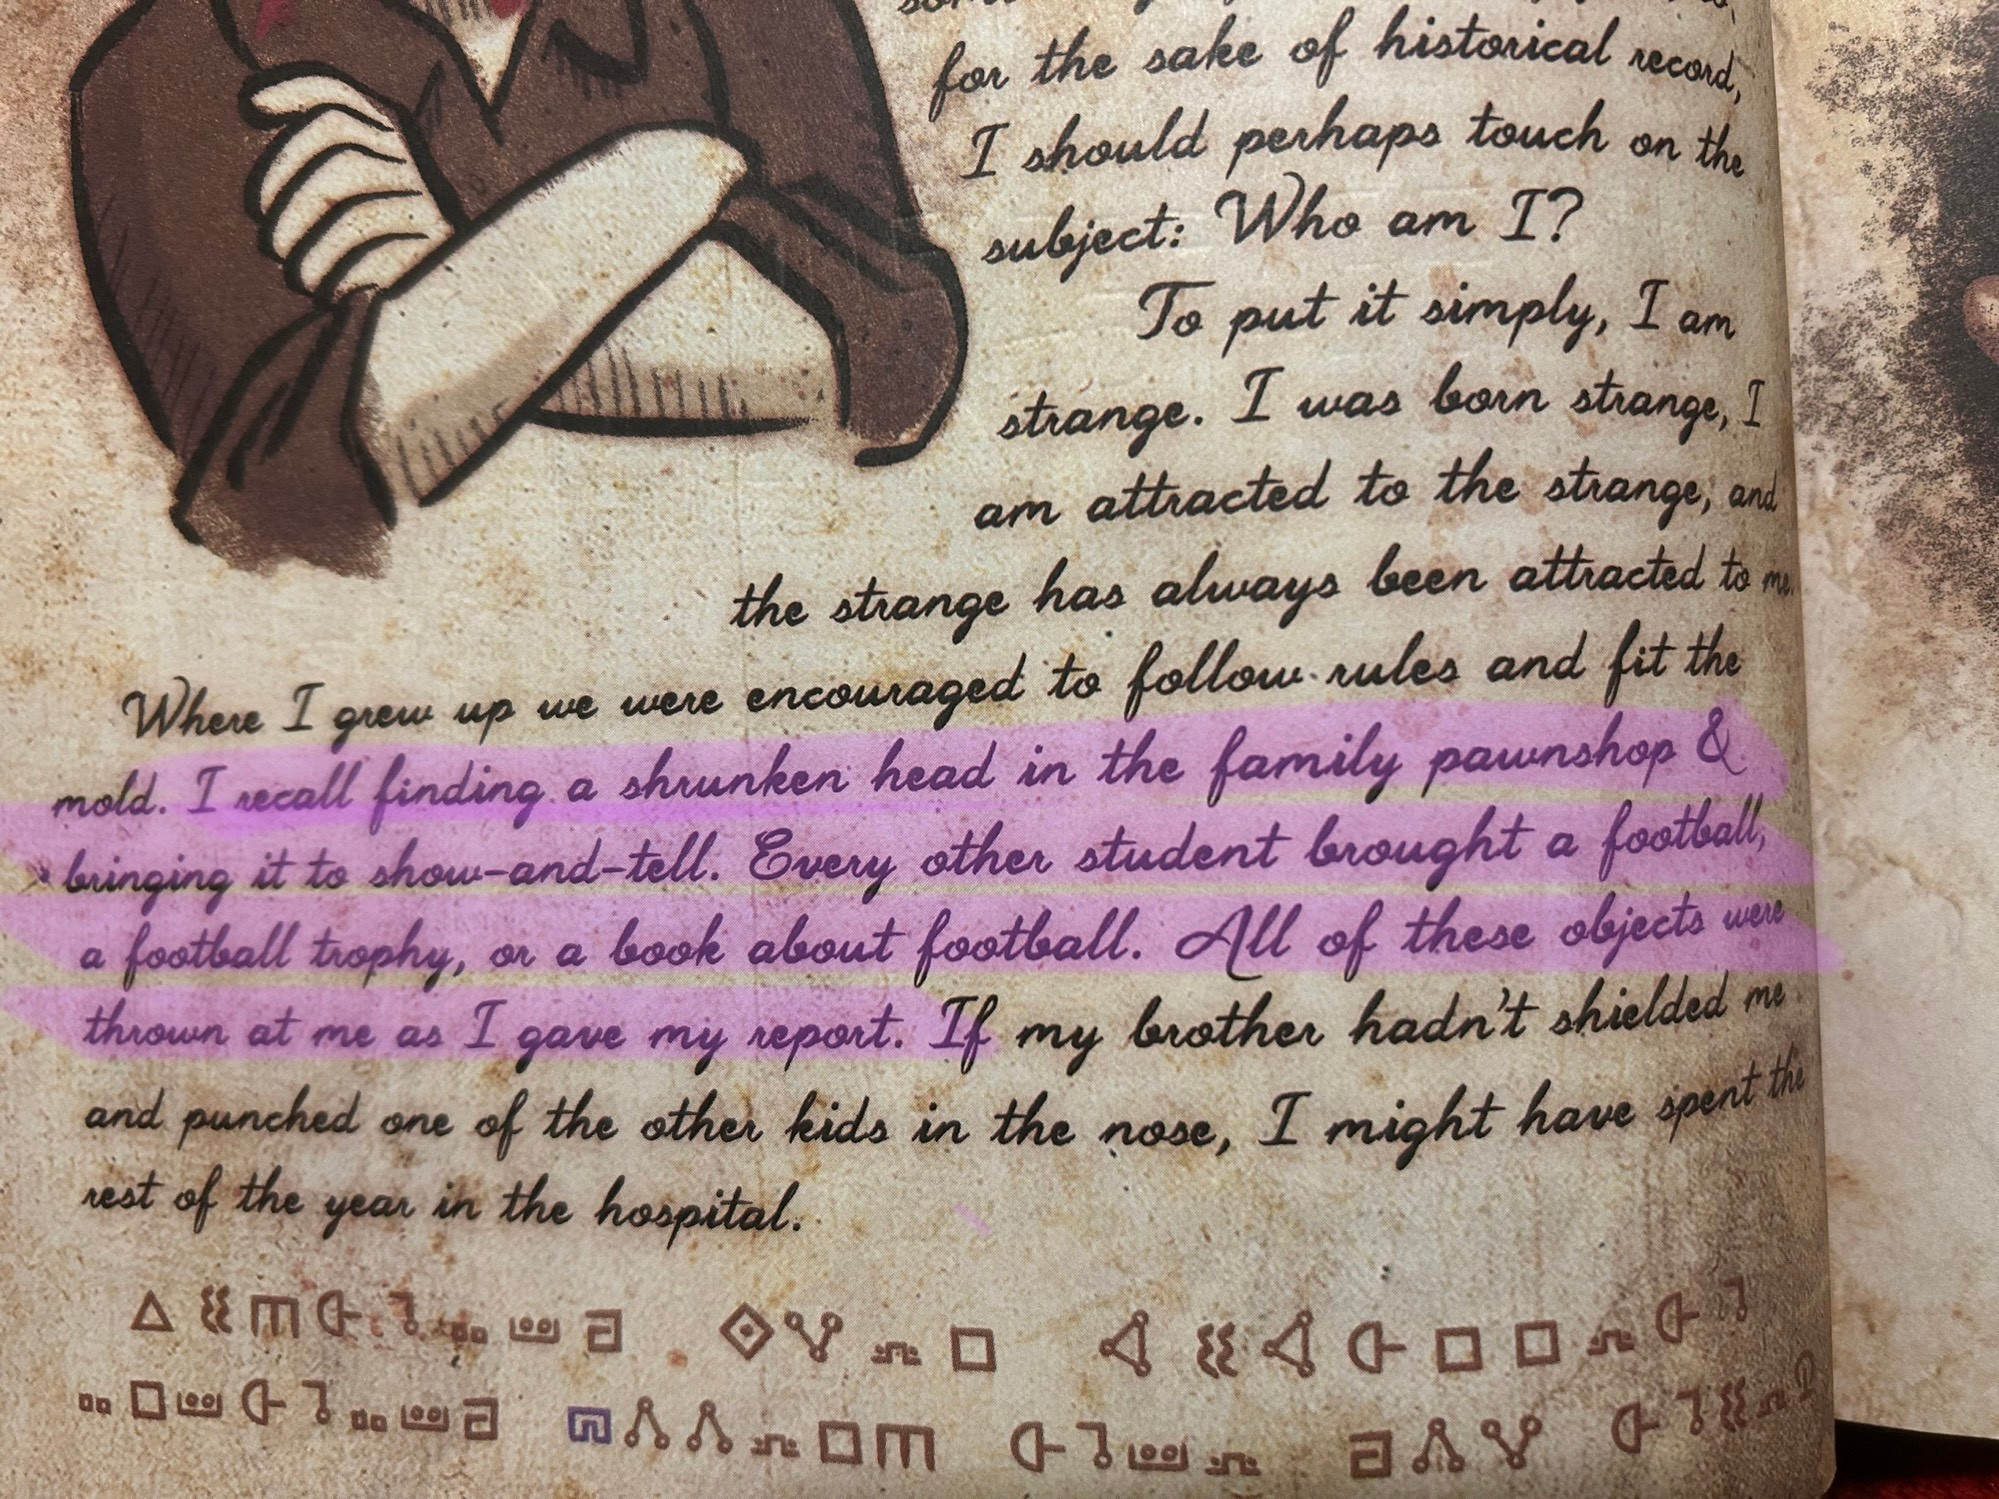 for the sake of historical record,
I should perhaps touch on the
subject: Who am I?
To put it simply, I am
strange. I was born strange, I
am attracted to the strange, and
the strange has always been attracted to me.
Where I grew up we were encouraged to follow rules and fit the
mold. I recall finding a shrunken head in the family pawnshop &
bringing it to show-and-tell. Every other student brought a football,
a football trophy, or a book about football. All of these objects were
thrown at me as I gave my report. If my brother hadn't shielded me
and punched one of the other kids in the nose, I might have spent the
rest of the year in the hospital.